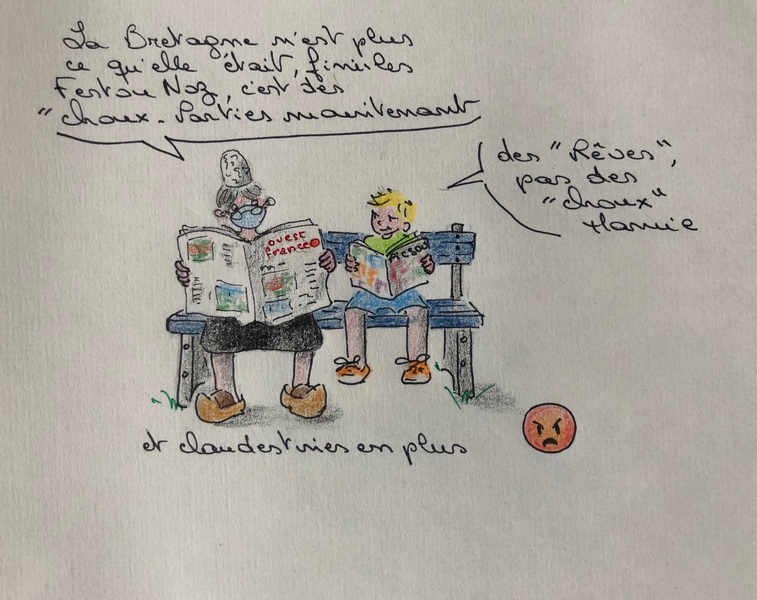 La Bretagne n'est plus
ce qu'elle était, finies les
Festou Noz, c'est des
"choux-Parties maintenant
des "Rêves",
pas des
"choux"
Mamie
ouest
france
Picsou
et clandestines en plus